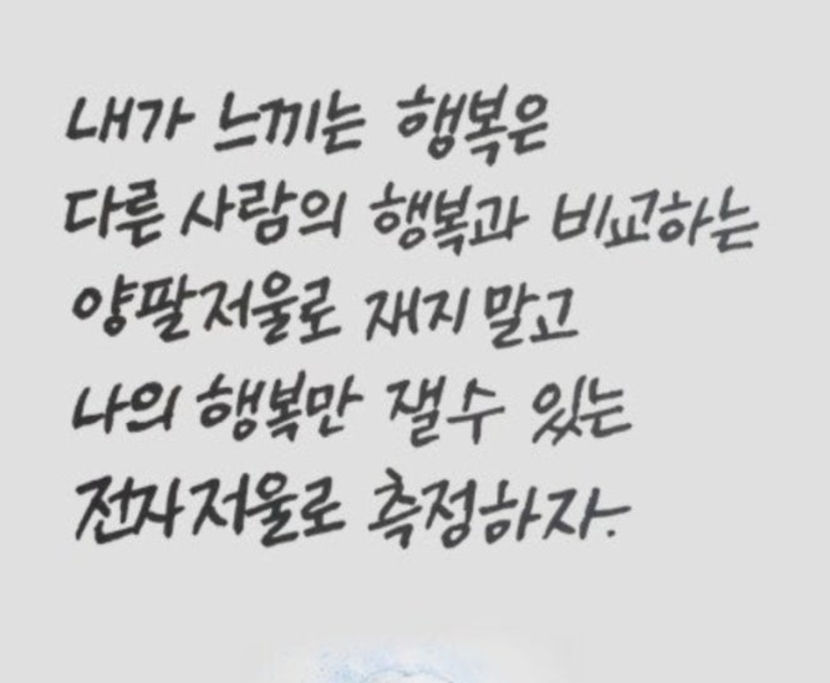 내가 느끼는 행복은
다른 사람의 행복과 비교하는
양팔저울로 재지 말고
나의 행복만 잴 수 있는
전자저울로 측정하자.